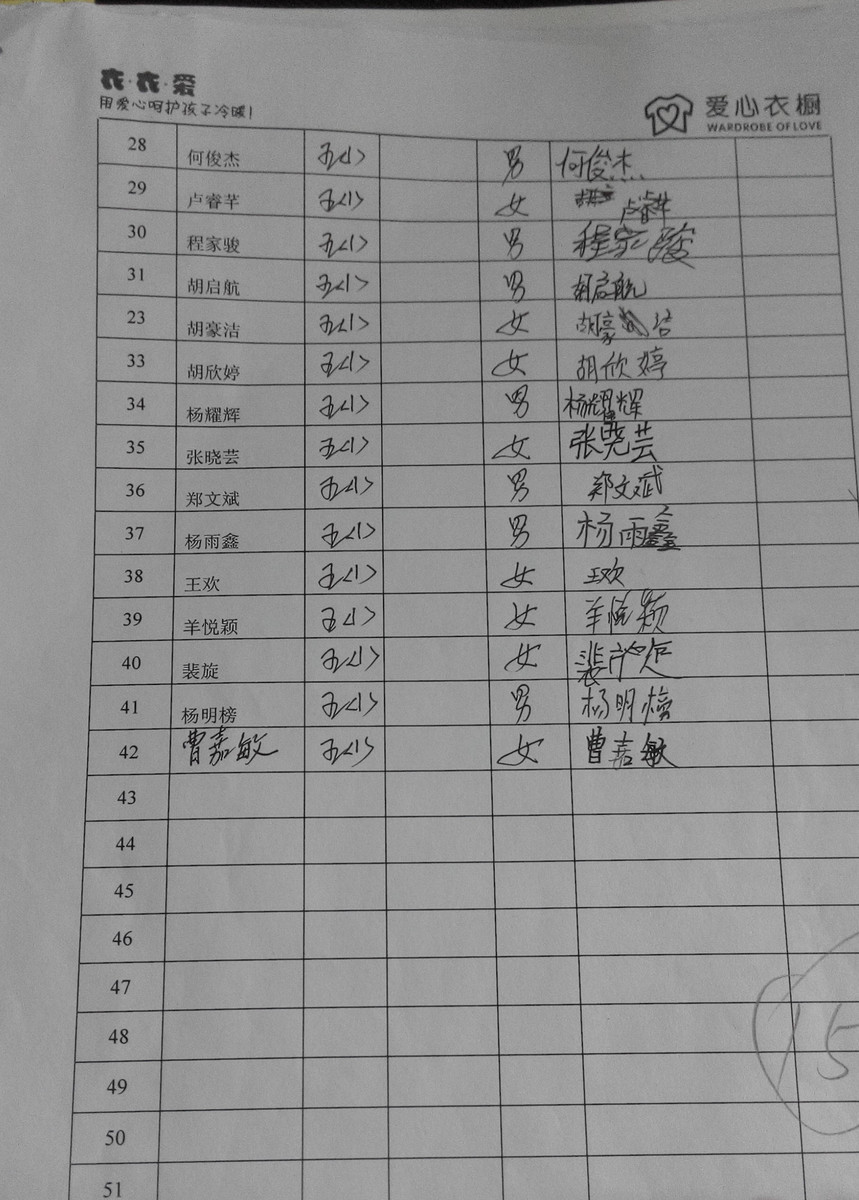 衣·衣·爱
用爱心呵护孩子冷暖!
爱心衣橱
WARDROBE OF LOVE
28 何俊杰 五<1> 男 何俊杰
29 卢睿芊 五<1> 女 卢睿芊
30 程家骏 五<1> 男 程家骏
31 胡启航 五<1> 男 胡启航
23 胡豪洁 五<1> 女 胡豪洁
33 胡欣婷 五<1> 女 胡欣婷
34 杨耀辉 五<1> 男 杨耀辉
35 张晓芸 五<1> 女 张晓芸
36 郑文斌 五<1> 男 郑文斌
37 杨雨鑫 五<1> 男 杨雨鑫
38 王欢 五<1> 女 王欢
39 羊悦颖 五<1> 女 羊悦颖
40 裴旋 五<1> 女 裴旋
41 杨明榜 五<1> 男 杨明榜
42 曹嘉敏 五<1> 女 曹嘉敏
43
44
45
46
47
48
49
50
51
15